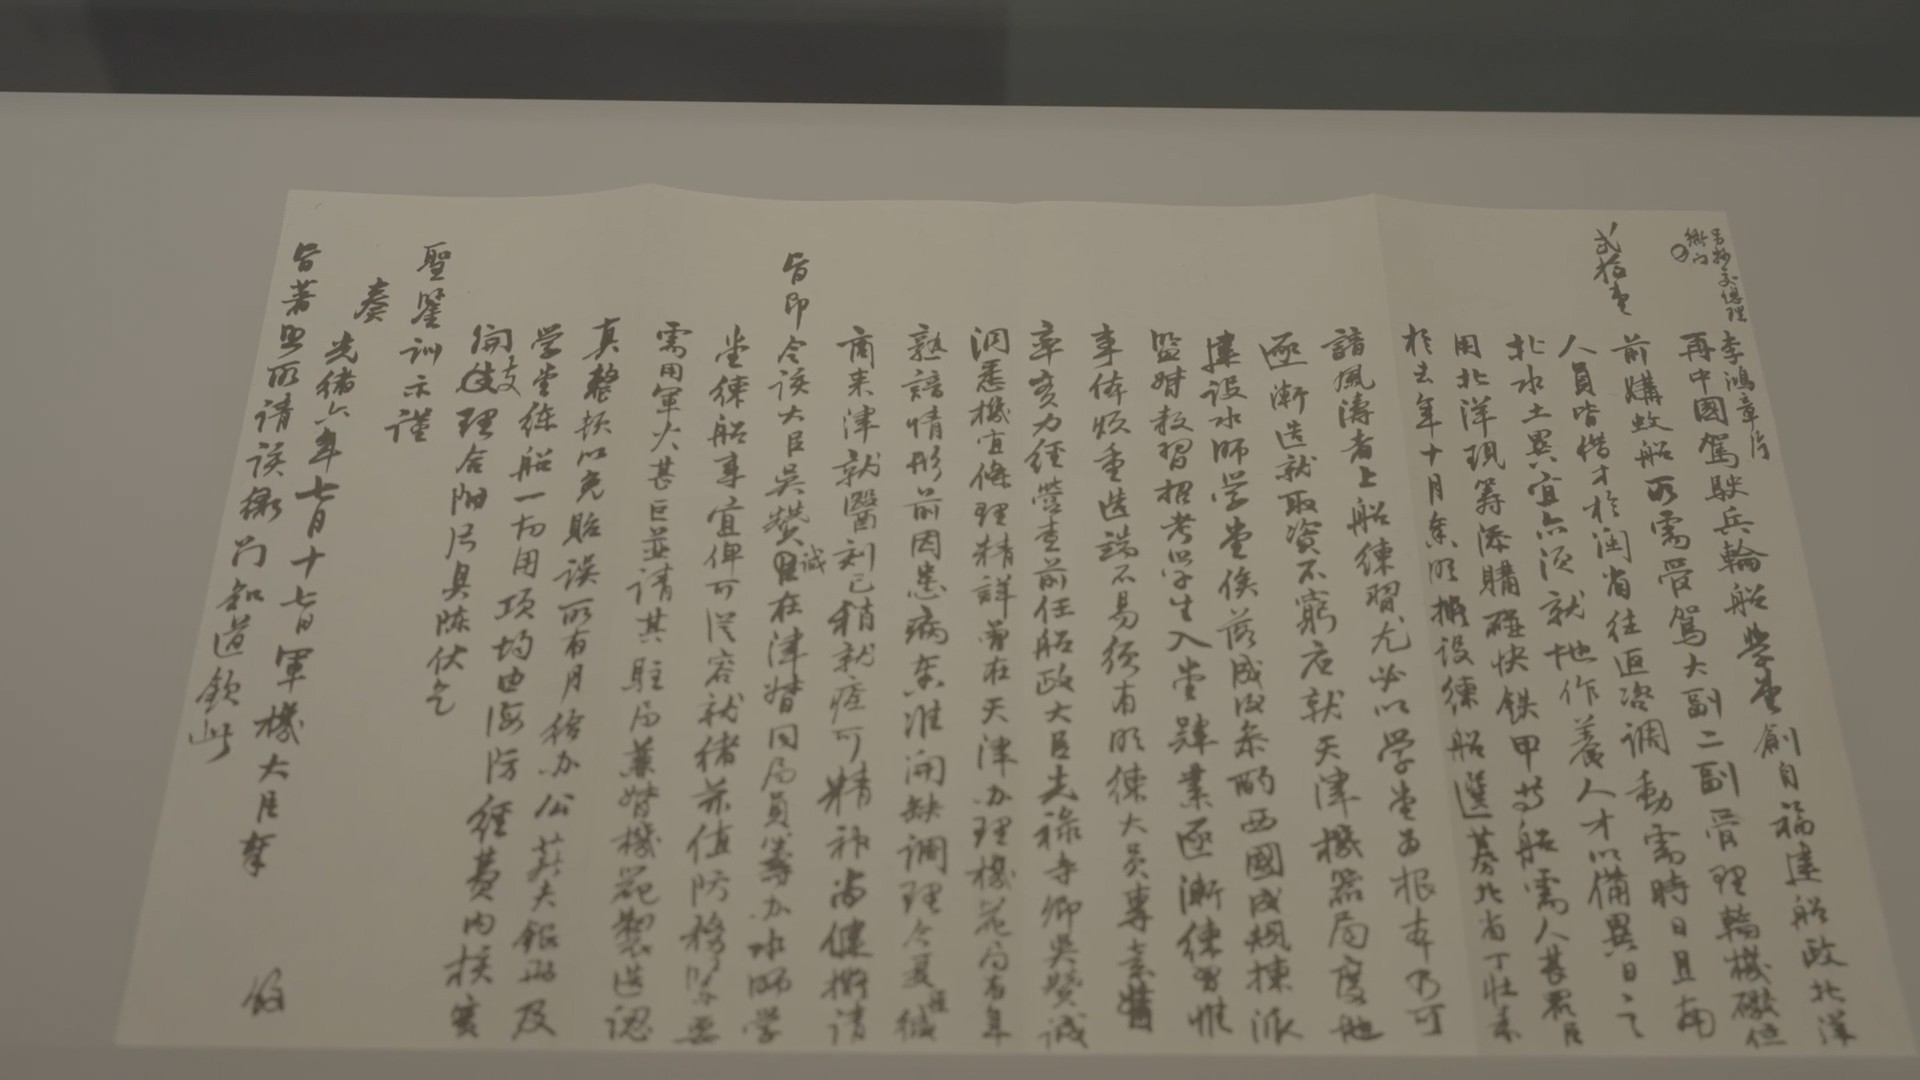 另抄交總理
衙門
弍拾壹
李鴻章片
再中國駕駛兵輪船學堂創自福建船政北洋
前購蚊船所需管駕大副二副管理輪機礮位
人員皆借才於閩省往返咨調動需時日且南
北水土異宜亦須就地作養人才以備異日之
用北洋現籌添購碰快鉄甲等船需人甚眾臣
於去年十月奏明擬設練船選募北省丁壯素
諳風濤者上船練習尤必以学堂為根本乃可
逐漸造就取資不窮應就天津機器局度地
建設水師学堂俟落成後参酌西國成規揀派
監督教習招考学生入堂肄業逐漸練習惟
事体煩重造端不易須有明練大員專素精
率實力經營查前任船政大臣光祿寺卿吳贊誠
洞悉機宜條理精詳曾在天津办理機器局有年
熟諳情形前因患病奏准開缺調理今夏經
商来津就醫刻已稍就痊可精神尚健擬請
旨即令該大臣吳贊誠在津督同局員籌办水師学
堂練船事宜俾可從容就緒并值防務緊要
需用軍火甚巨並請其駐局兼督機器製造認
真整頓以免貽誤所有月给办公薪夫銀両及
学堂练船一切用项均由海防經費內核實
開支理合附片具陳伏乞
聖鑒訓示謹
奏
光绪六年七月十七日軍機大臣奉
旨著照所請該衙門知道欽此